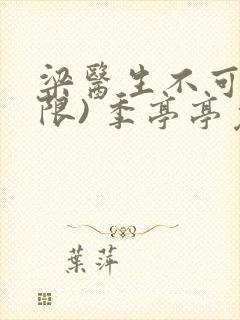 梁醫生不可
限) 季亭亭
葉萍